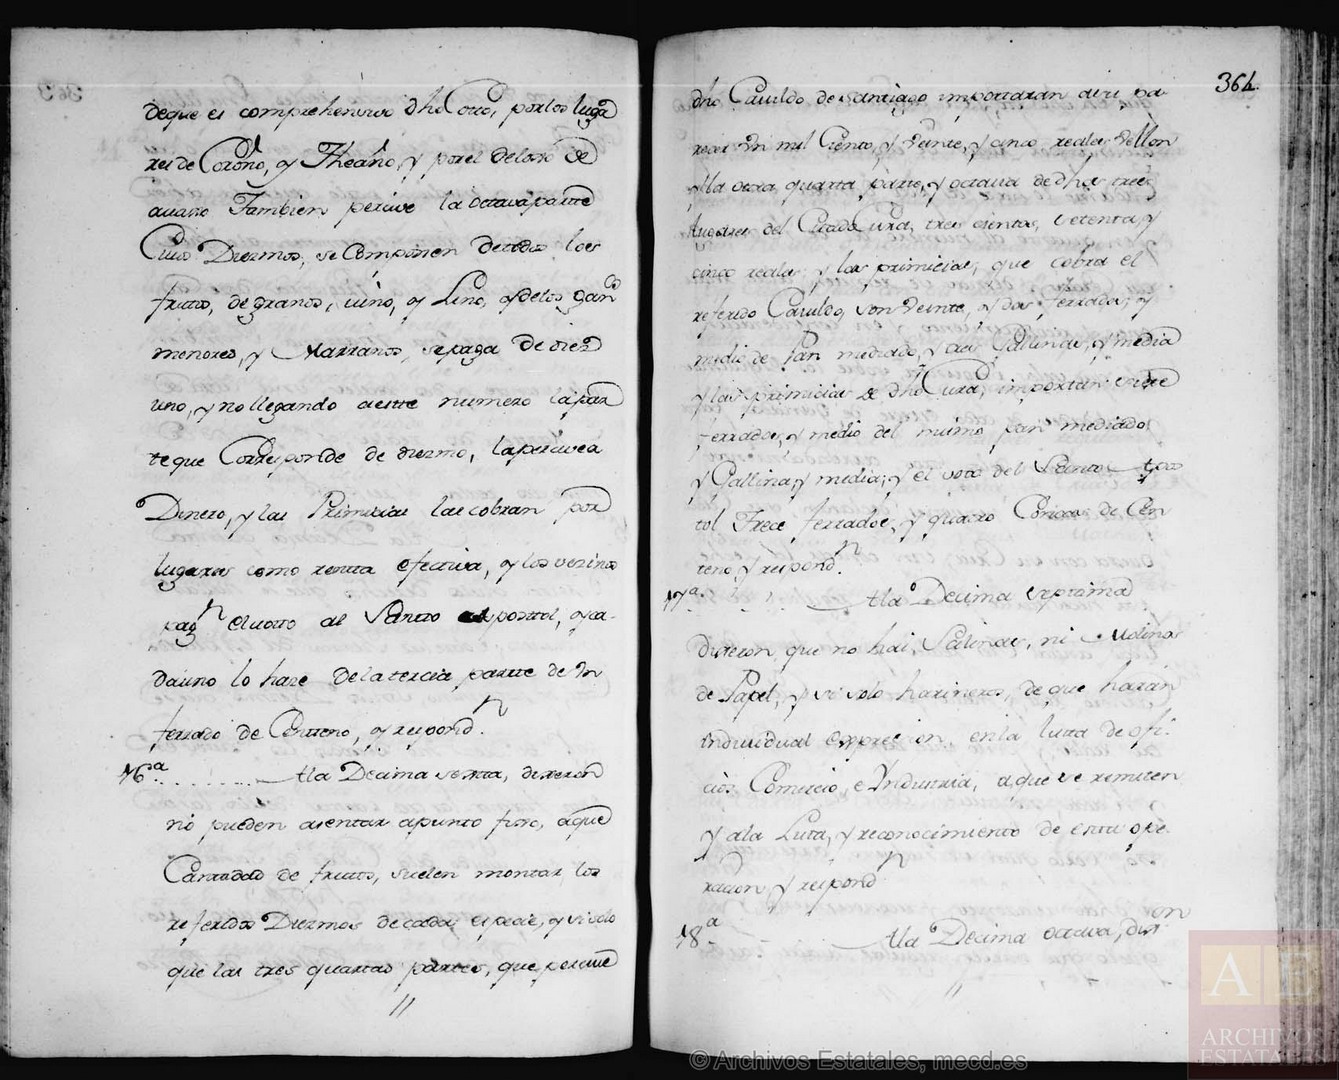 deque es comprehensivo dho Coto, por los luga
res de Coroño, y Theaño, y por el de loxo se
auano Tambien percive la octava parte
Cuios Diezmos, se componen de todos los
frutos, de granos, vino, y Lino, y de los gan.
menores, y Marranos, se paga de diez
uno, y no llegando a este numero la par
te que Corresponde de diezmo, la percive a
Dinero, y las Primicias las cobran por
lugares como renta efectiva, y los vezinos
pag.n el voto al Santo apostol, y ca-
da uno lo haze de la tercia parte de Un
ferrado de Centeno, y respond.n
16ª A la Decima sexta, dixeron
no pueden asentar apunto fixo, aque
Cantidad de frutos, suelen montar los
referidos Diezmos de cada especie, y si solo
que las tres quartas partes, que percive
364
dho Cavildo de Santiago importaran a su pa
recer Un mil Ciento, y Veinte, y cinco reales Vellon
y la otra quarta parte, y octava de dhos tres
lugares del Citado Cura, tres cientos, setenta, y
cinco reales; y las primicias, que cobra el
referido Cavildo, son Veinte, y dos ferrados, y
medio de Pan mediado, y dos Gallinas, y media
y las primicias de dho Cura, importan siete
ferrados, y medio del mismo pan mediado
y Gallina, y media; y el voto del Santo Apos
tol Trece ferrados, y quatro Concas de Cen
teno, y respond.n
17ª A la Decima septima
Dixeron, que no hai, Salinas, ni Molinos
de Papel, y si solo harineros, de que haran
individual expresion en la lista de ofi-
cios Comercio, e Yndustria, a que se remiten
y a la Lista, y reconocimiento de esta ope
racion y respond.n
18ª A la Decima octava, dixeron
© Archivos Estatales, mecd.es
AE
ARCHIVOS
ESTATALES